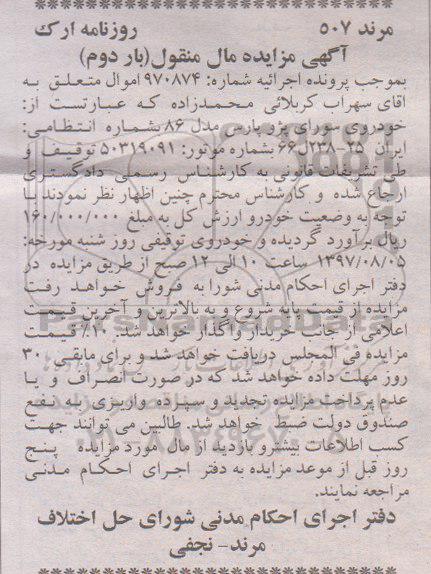 مرند ۵۰۷ روزنامه ارک
آگهی مزایده مال منقول(بار دوم)
بموجب پرونده اجرائیه شماره: ۹۷۰۸۷۴ اموال متعلق به
آقای سهراب کربلائی محمدزاده که عبارتست از:
خودروی سواری پژو پارس مدل ۸۶ بشماره انتظامی:
ایران ۲۵-۲۳۸ل۶۶ بشماره موتور: ۵۰۳۱۹۰۹۱ توقیف و
طی تشریفات قانونی به کارشناس رسمی دادگستری
ارجاع شده و کارشناس محترم چنین اظهار نظر نمودند با
توجه به وضعیت خودرو ارزش کل به مبلغ ۱۶۰/۰۰۰/۰۰۰
ریال برآورد گردیده و خودروی توقیفی روز شنبه مورخه:
۱۳۹۷/۰۸/۰۵ ساعت ۱۰ الی ۱۲ صبح از طریق مزایده در
دفتر اجرای احکام مدنی شورا به فروش خواهد رفت
مزایده از قیمت پایه شروع و به بالاترین و آخرین قیمت
اعلامی از جانب خریدار واگذار خواهد شد. ۱۰٪ قیمت
مزایده فی المجلس دریافت خواهد شد و برای مابقی ۳۰
روز مهلت داده خواهد شد که در صورت انصراف و یا
عدم پرداخت مزایده تجدید و سپرده واریزی به نفع
صندوق دولت ضبط خواهد شد. طالبین می توانند جهت
کسب اطلاعات بیشترو بازدید از مال مورد مزایده پنج
روز قبل از موعد مزایده به دفتر اجرای احکام مدنی
مراجعه نمایند.
دفتر اجرای احکام مدنی شورای حل اختلاف
مرند- نجفی